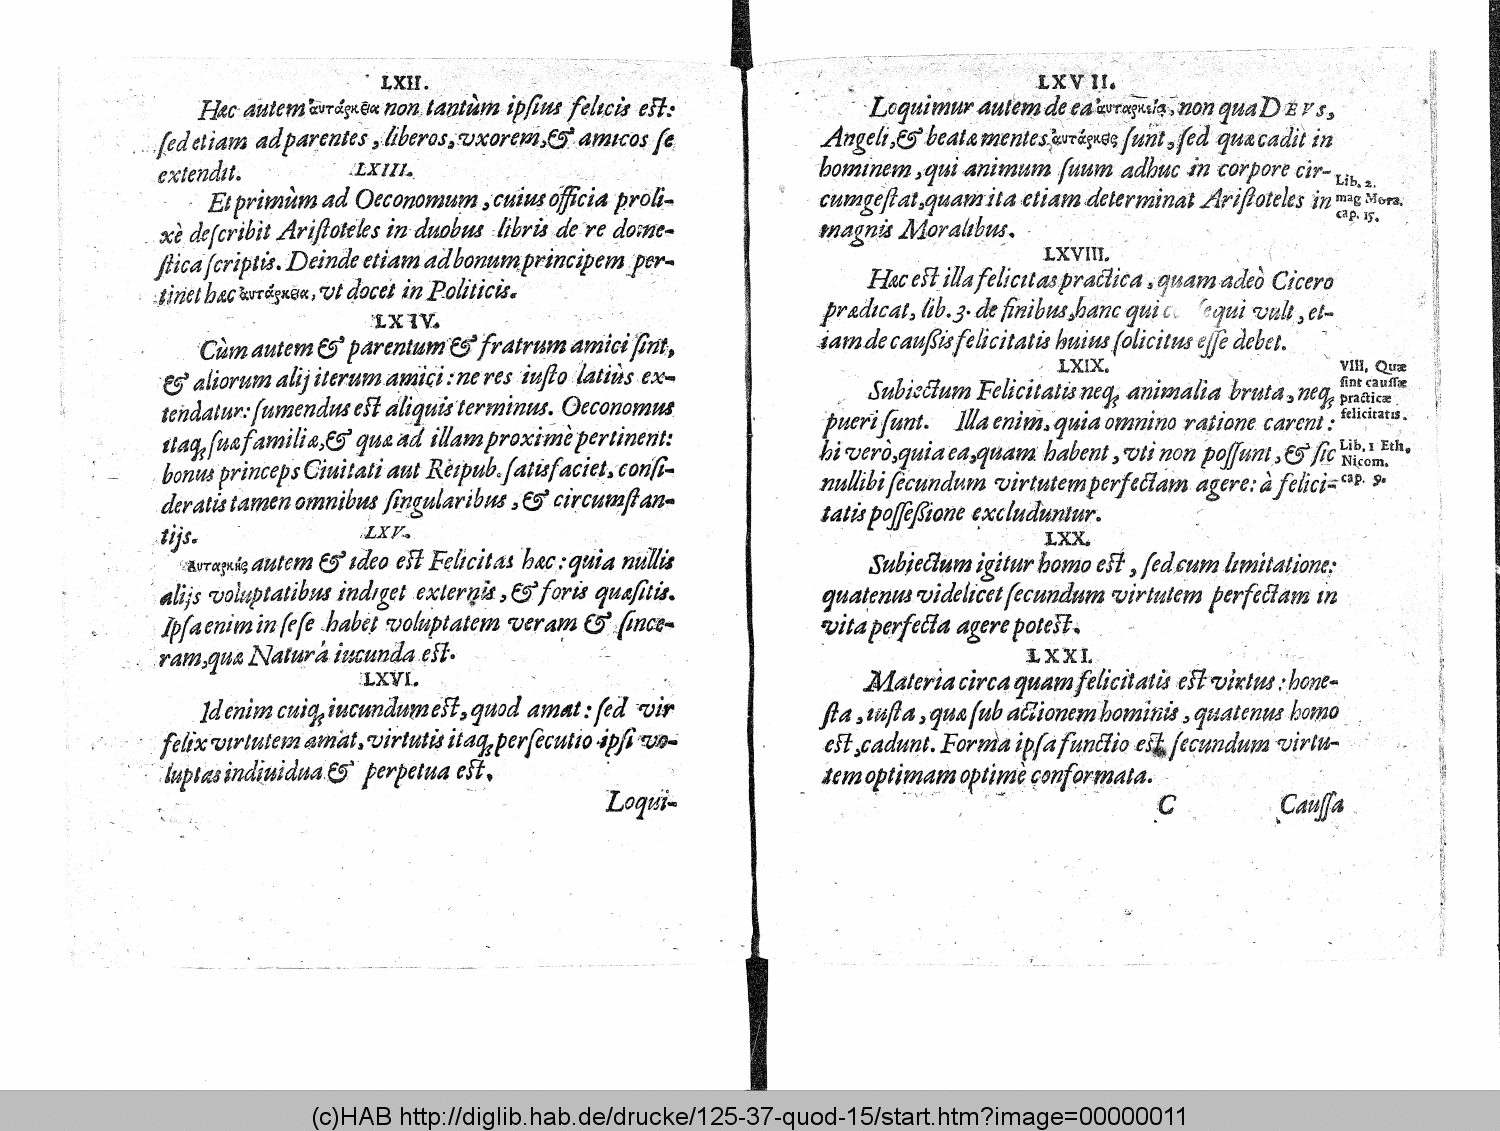 LXII.
Hæc autem αὐτάρκεια non tantùm ipſius felicis eſt:
ſed etiam ad parentes, liberos, vxorem, & amicos ſe
extendit.
LXIII.
Et primùm ad Oeconomum, cuius officia proli-
xè deſcribit Ariſtoteles in duobus libris de re dome-
ſtica ſcriptis. Deinde etiam ad bonum principem per-
tinet hæc αὐτάρκεια, vt docet in Politicis.
LXIV.
Cùm autem & parentum & fratrum amici ſint,
& aliorum alij iterum amici: ne res iuſto latiùs ex-
tendatur: ſumendus eſt aliquis terminus. Oeconomus
itaq; ſuæ familiæ, & quæ ad illam proximè pertinent:
bonus princeps Ciuitati aut Reipub. ſatisfaciet, conſi-
deratis tamen omnibus ſingularibus, & circumſtan-
tijs.
LXV.
Αυταρκής autem & ideo eſt Felicitas hæc: quia nullis
alijs voluptatibus indiget externis, & foris quæſitis.
Ipſa enim in ſeſe habet voluptatem veram & ſince-
ram, quæ Naturâ iucunda eſt.
LXVI.
Id enim cuiq; iucundum eſt, quod amat: ſed vir
felix virtutem amat, virtutis itaq; perſecutio ipſi vo-
luptas indiuidua & perpetua eſt,
Loqui-
LXVII.
Loquimur autem de ea αὐταρκείᾳ, non qua DEVS,
Angeli, & beatæ mentes αὐτάρκεις ſunt, ſed quæ cadit in
hominem, qui animum ſuum adhuc in corpore cir-
cumgeſtat, quam ita etiam determinat Ariſtoteles in
magnis Moralibus.
Lib. 2.
mag Mora.
cap. 15.
LXVIII.
Hæc eſt illa felicitas practica, quam adeò Cicero
prædicat, lib. 3. de finibus, hanc qui equi vult, et-
iam de cauſsis felicitatis huius ſolicitus eſſe debet.
LXIX.
Subiectum Felicitatis neq; animalia bruta, neq;
pueri ſunt. Illa enim, quia omnino ratione carent:
hi verò, quia ea, quam habent, vti non poſſunt, & ſic
nullibi ſecundum virtutem perfectam agere: à felici-
tatis poſſeſsione excluduntur.
VIII. Quæ
ſint cauſſæ
practicæ
felicitatis.
Lib. 1 Eth.
Nicom.
cap. 9.
LXX.
Subiectum igitur homo eſt, ſed cum limitatione:
quatenus videlicet ſecundum virtutem perfectam in
vita perfecta agere poteſt.
LXXI.
Materia circa quam felicitatis eſt virtus: hone-
ſta, iuſta, quæ ſub actionem hominis, quatenus homo
eſt, cadunt. Forma ipſa functio eſt ſecundum virtu-
tem optimam optimè conformata.
C Cauſſa
(c)HAB http://diglib.hab.de/drucke/125-37-quod-15/start.htm?image=00000011